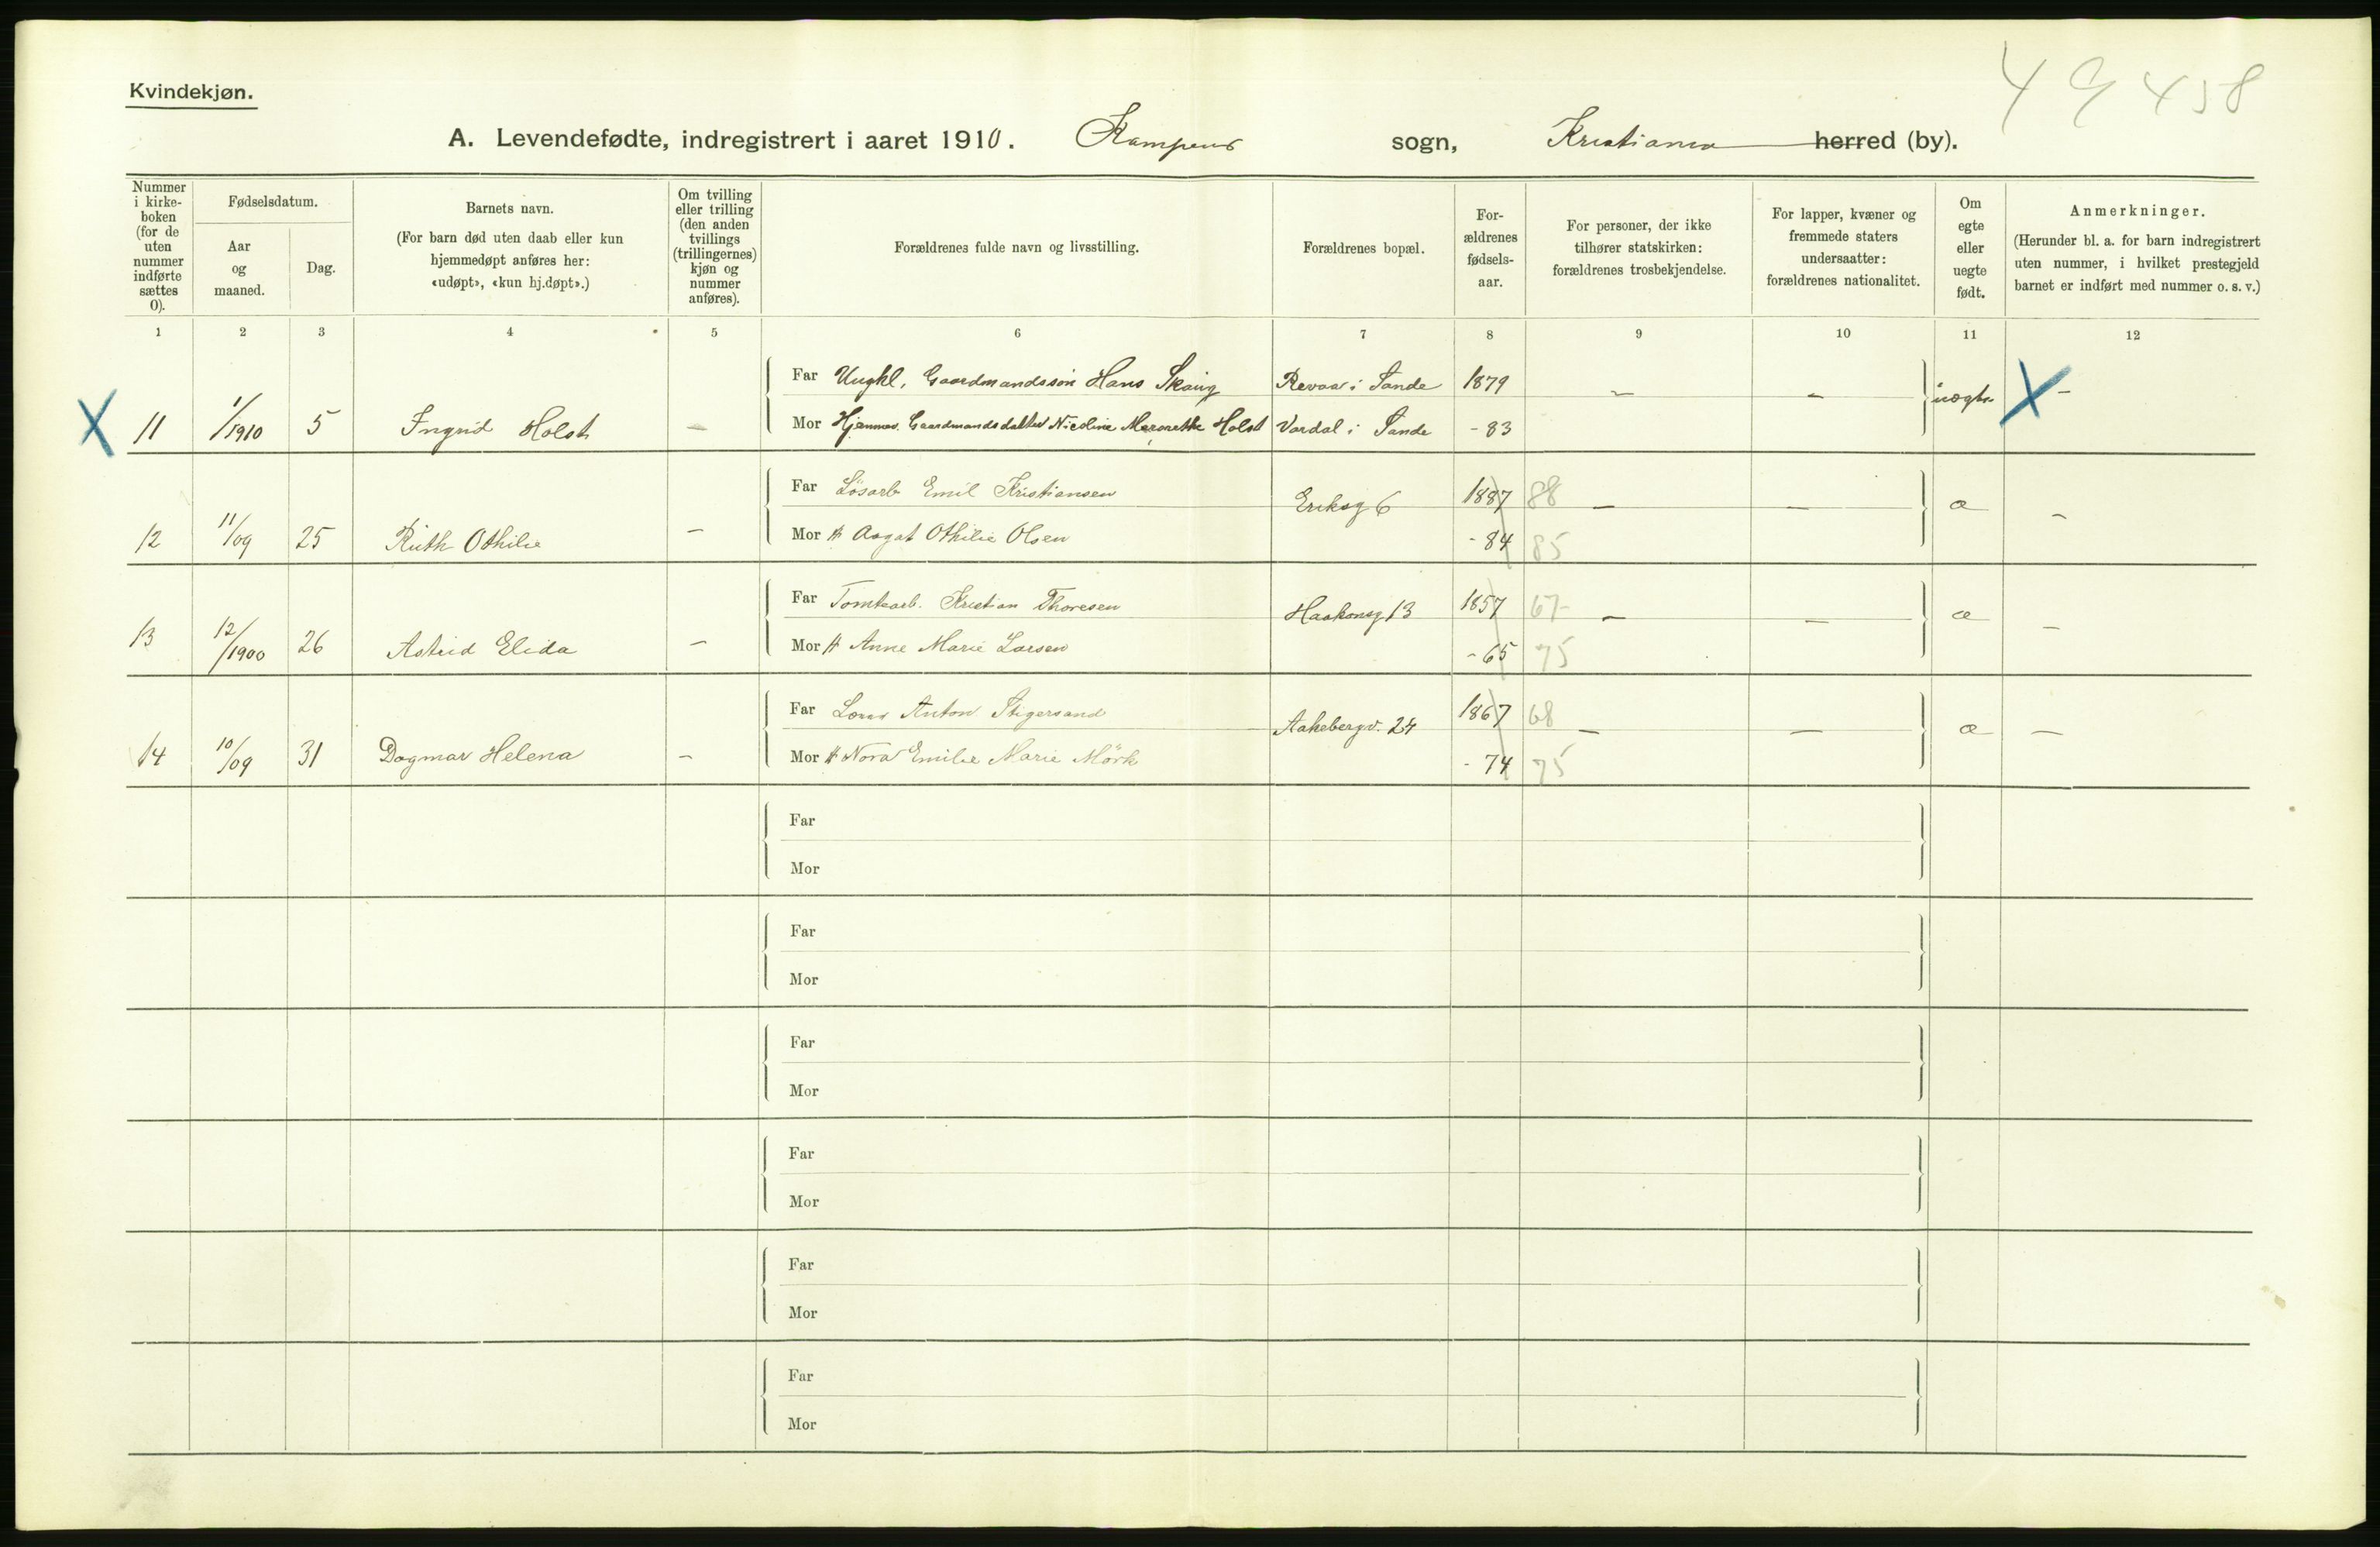 Kvindekjøn.
49 458
A. Levendefødte, indregistrert i aaret 1910. Kampens sogn, Kristiania herred (by).
Nummer i kirkeboken (for de uten nummer indførte sættes 0).
Fødselsdatum.
Aar og maaned.
Dag.
Barnets navn.
(For barn død uten daab eller kun hjemmedøpt anføres her: «udøpt», «kun hj.døpt».)
Om tvilling eller trilling (den anden tvillings (trillingernes) kjøn og nummer anføres).
Forældrenes fulde navn og livsstilling.
Forældrenes bopæl.
For-ældrenes fødsels-aar.
For personer, der ikke tilhører statskirken: forældrenes trosbekjendelse.
For lapper, kvæner og fremmede staters undersaatter: forældrenes nationalitet.
Om egte eller uegte født.
Anmerkninger.
(Herunder bl. a. for barn indregistrert uten nummer, i hvilket prestegjeld barnet er indført med nummer o. s. v.)
1 2 3 4 5 6 7 8 9 10 11 12
Far Ungkl. Gaardmandssøn Hans Skaug Revaa i Sande 1879 - - uægte -
X 11 1/1910 5 Ingrid Holst - Mor Hjemmev. Gaardmandsdatter Nicoline Holst Vardal i Sande - 83 X
Far Løsarb Emil Kristiansen Eriksg 6 1887 88 - - æ -
12 11/09 25 Ruth Othilie - Mor H Aagot Othilie Olsen - 84 85
Far Tomtearb. Kristian Thoresen Haakonsg 13 1857 67 - - æ -
13 12/1900 26 Astrid Elida - Mor H Anne Marie Larsen - 65 75
Far Anton Stigersand Aakebergv. 24 1867 68 - - æ -
14 10/09 31 Dagmar Helena - Mor H Nora Emilie Marie Mörk - 74 75
Far
Mor
Far
Mor
Far
Mor
Far
Mor
Far
Mor
Far
Mor